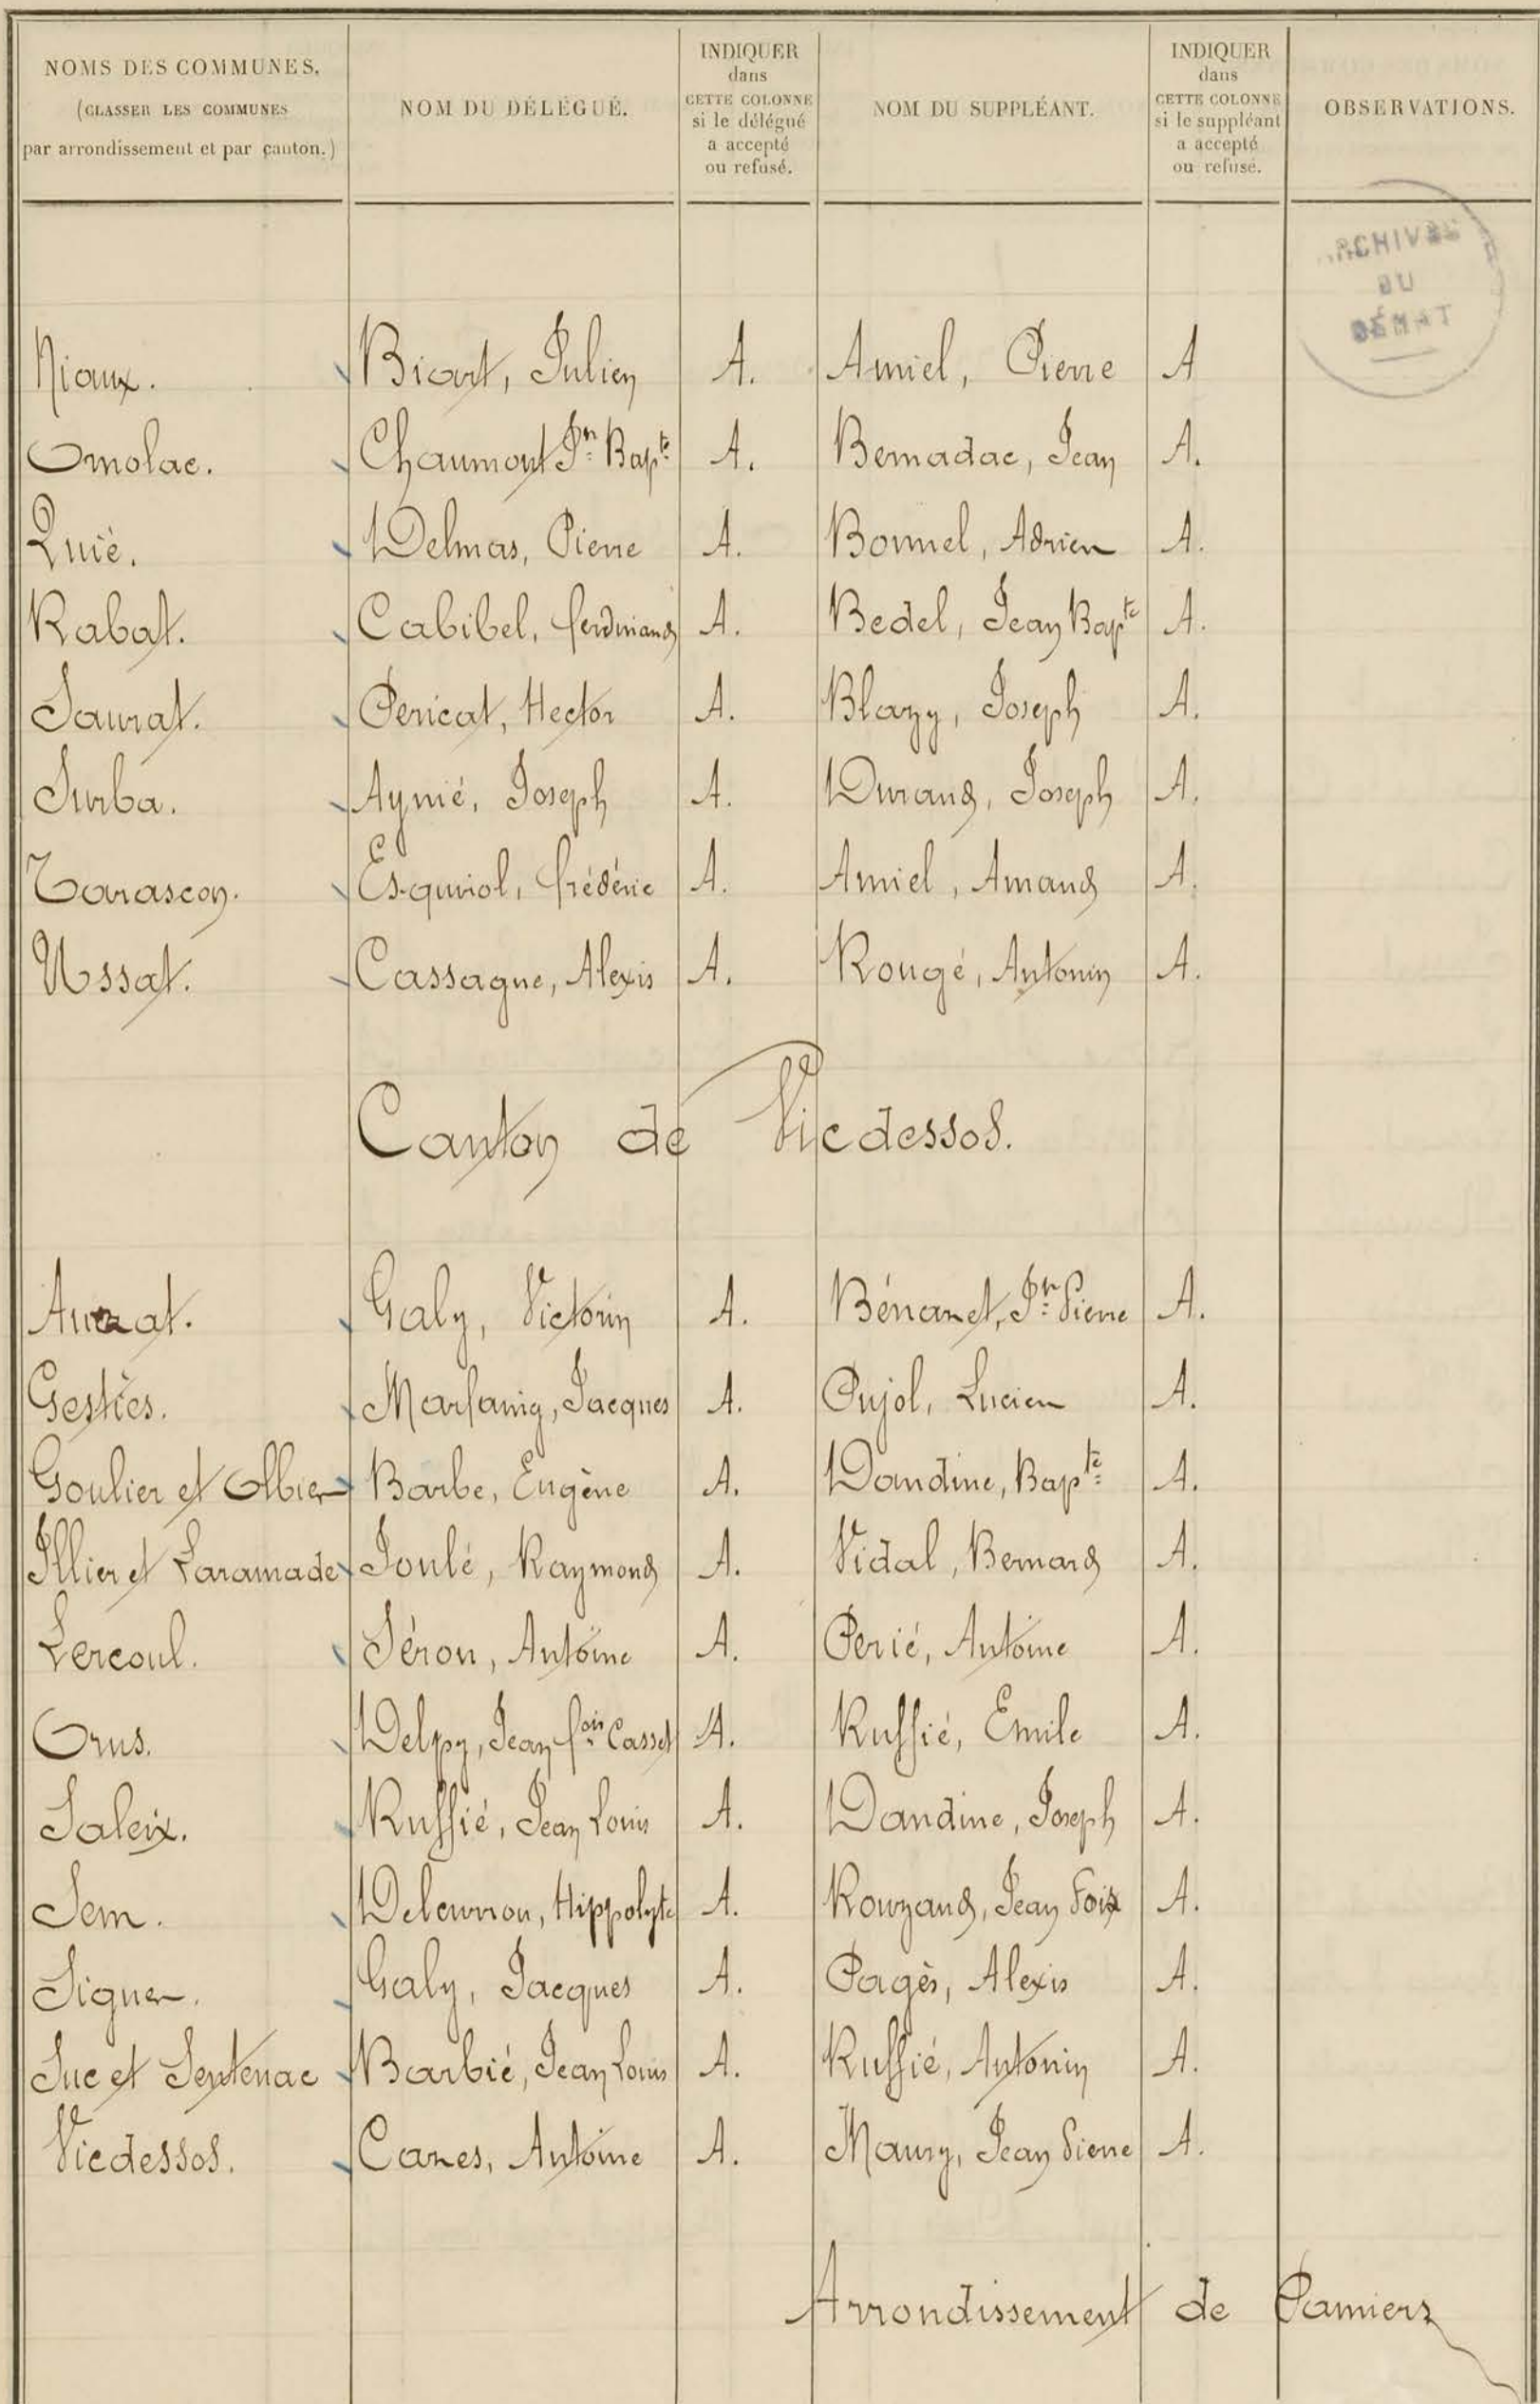 NOMS DES COMMUNES. (CLASSER LES COMMUNES par arrondissement et par canton.) NOM DU DÉLÉGUÉ. INDIQUER dans CETTE COLONNE si le délégué a accepté ou refusé. NOM DU SUPPLÉANT. INDIQUER dans CETTE COLONNE si le suppléant a accepté ou refusé. OBSERVATIONS.
Niaux. Bicart, Julien A. Amiel, Pierre A
Ornolac. Chaumont Jn Bapte A. Bernadac, Jean A.
Quié. Delmas, Pierre A. Bonnel, Adrien A.
Rabat. Cabibel, ferdinand A. Bedel, Jean Bapte A.
Saurat. Pericat, Hector A. Blazy, Joseph A.
Surba. Aynié, Joseph A. Durand, Joseph A.
Tarascon. Esquirol, frédéric A. Amiel, Amand A.
Ussat. Cassagne, Alexis A. Rougé, Antonin A.
Canton de Vicdessos.
Auzat. Galy, Victorin A. Bénazet, Jn Pierre A.
Gestiès. Marfaing, Jacques A. Pujol, Lucien A.
Goulier et Olbier Barbe, Eugène A. Dandine, Bapte A.
Illier et Laramade Joulé, Raymond A. Vidal, Bernard A.
Lercoul. Séron, Antoine A. Perié, Antoine A.
Orus. Delpy, Jean fois Casset A. Ruffié, Emile A.
Saleix. Ruffié, Jean Louis A. Dandine, Joseph A.
Sem. Hippolyte A. Rouzaud, Jean Foix A.
Siguer. Galy, Jacques A. Pagès, Alexis A.
Suc et Sentenac Barbié, Jean Louis A. Ruffié, Antonin A.
Vicdessos. Cazes, Antoine A. Maury, Jean Pierre A.
Arrondissement de Pamiers